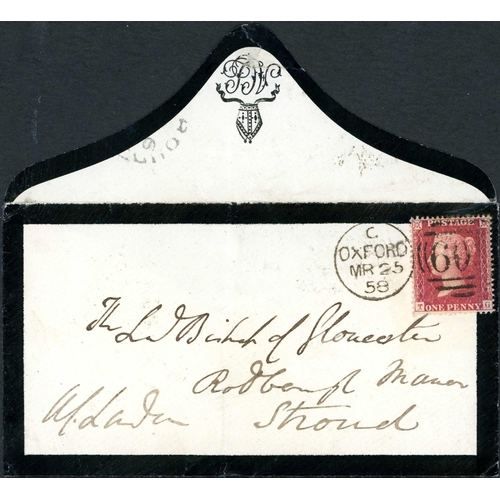 C.
OXFORD
MR 25
58
POSTAGE
60
T G
ONE PENNY
The Ld Bishop of Gloucester
Manor
Stroud